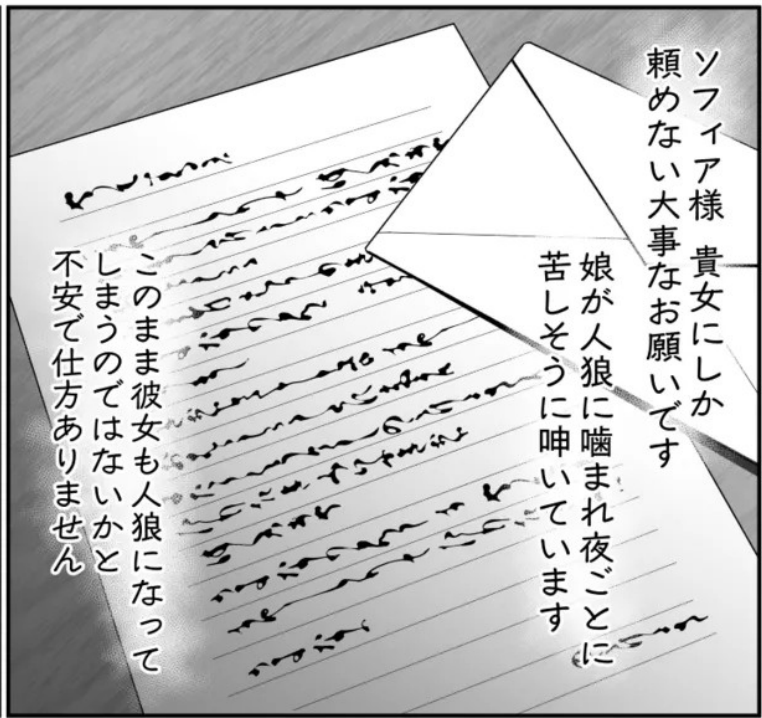 ソフィア様 貴女にしか
頼めない大事なお願いです
娘が人狼に噛まれ夜ごとに
苦しそうに呻いています
このまま彼女も人狼になって
しまうのではないかと
不安で仕方ありません